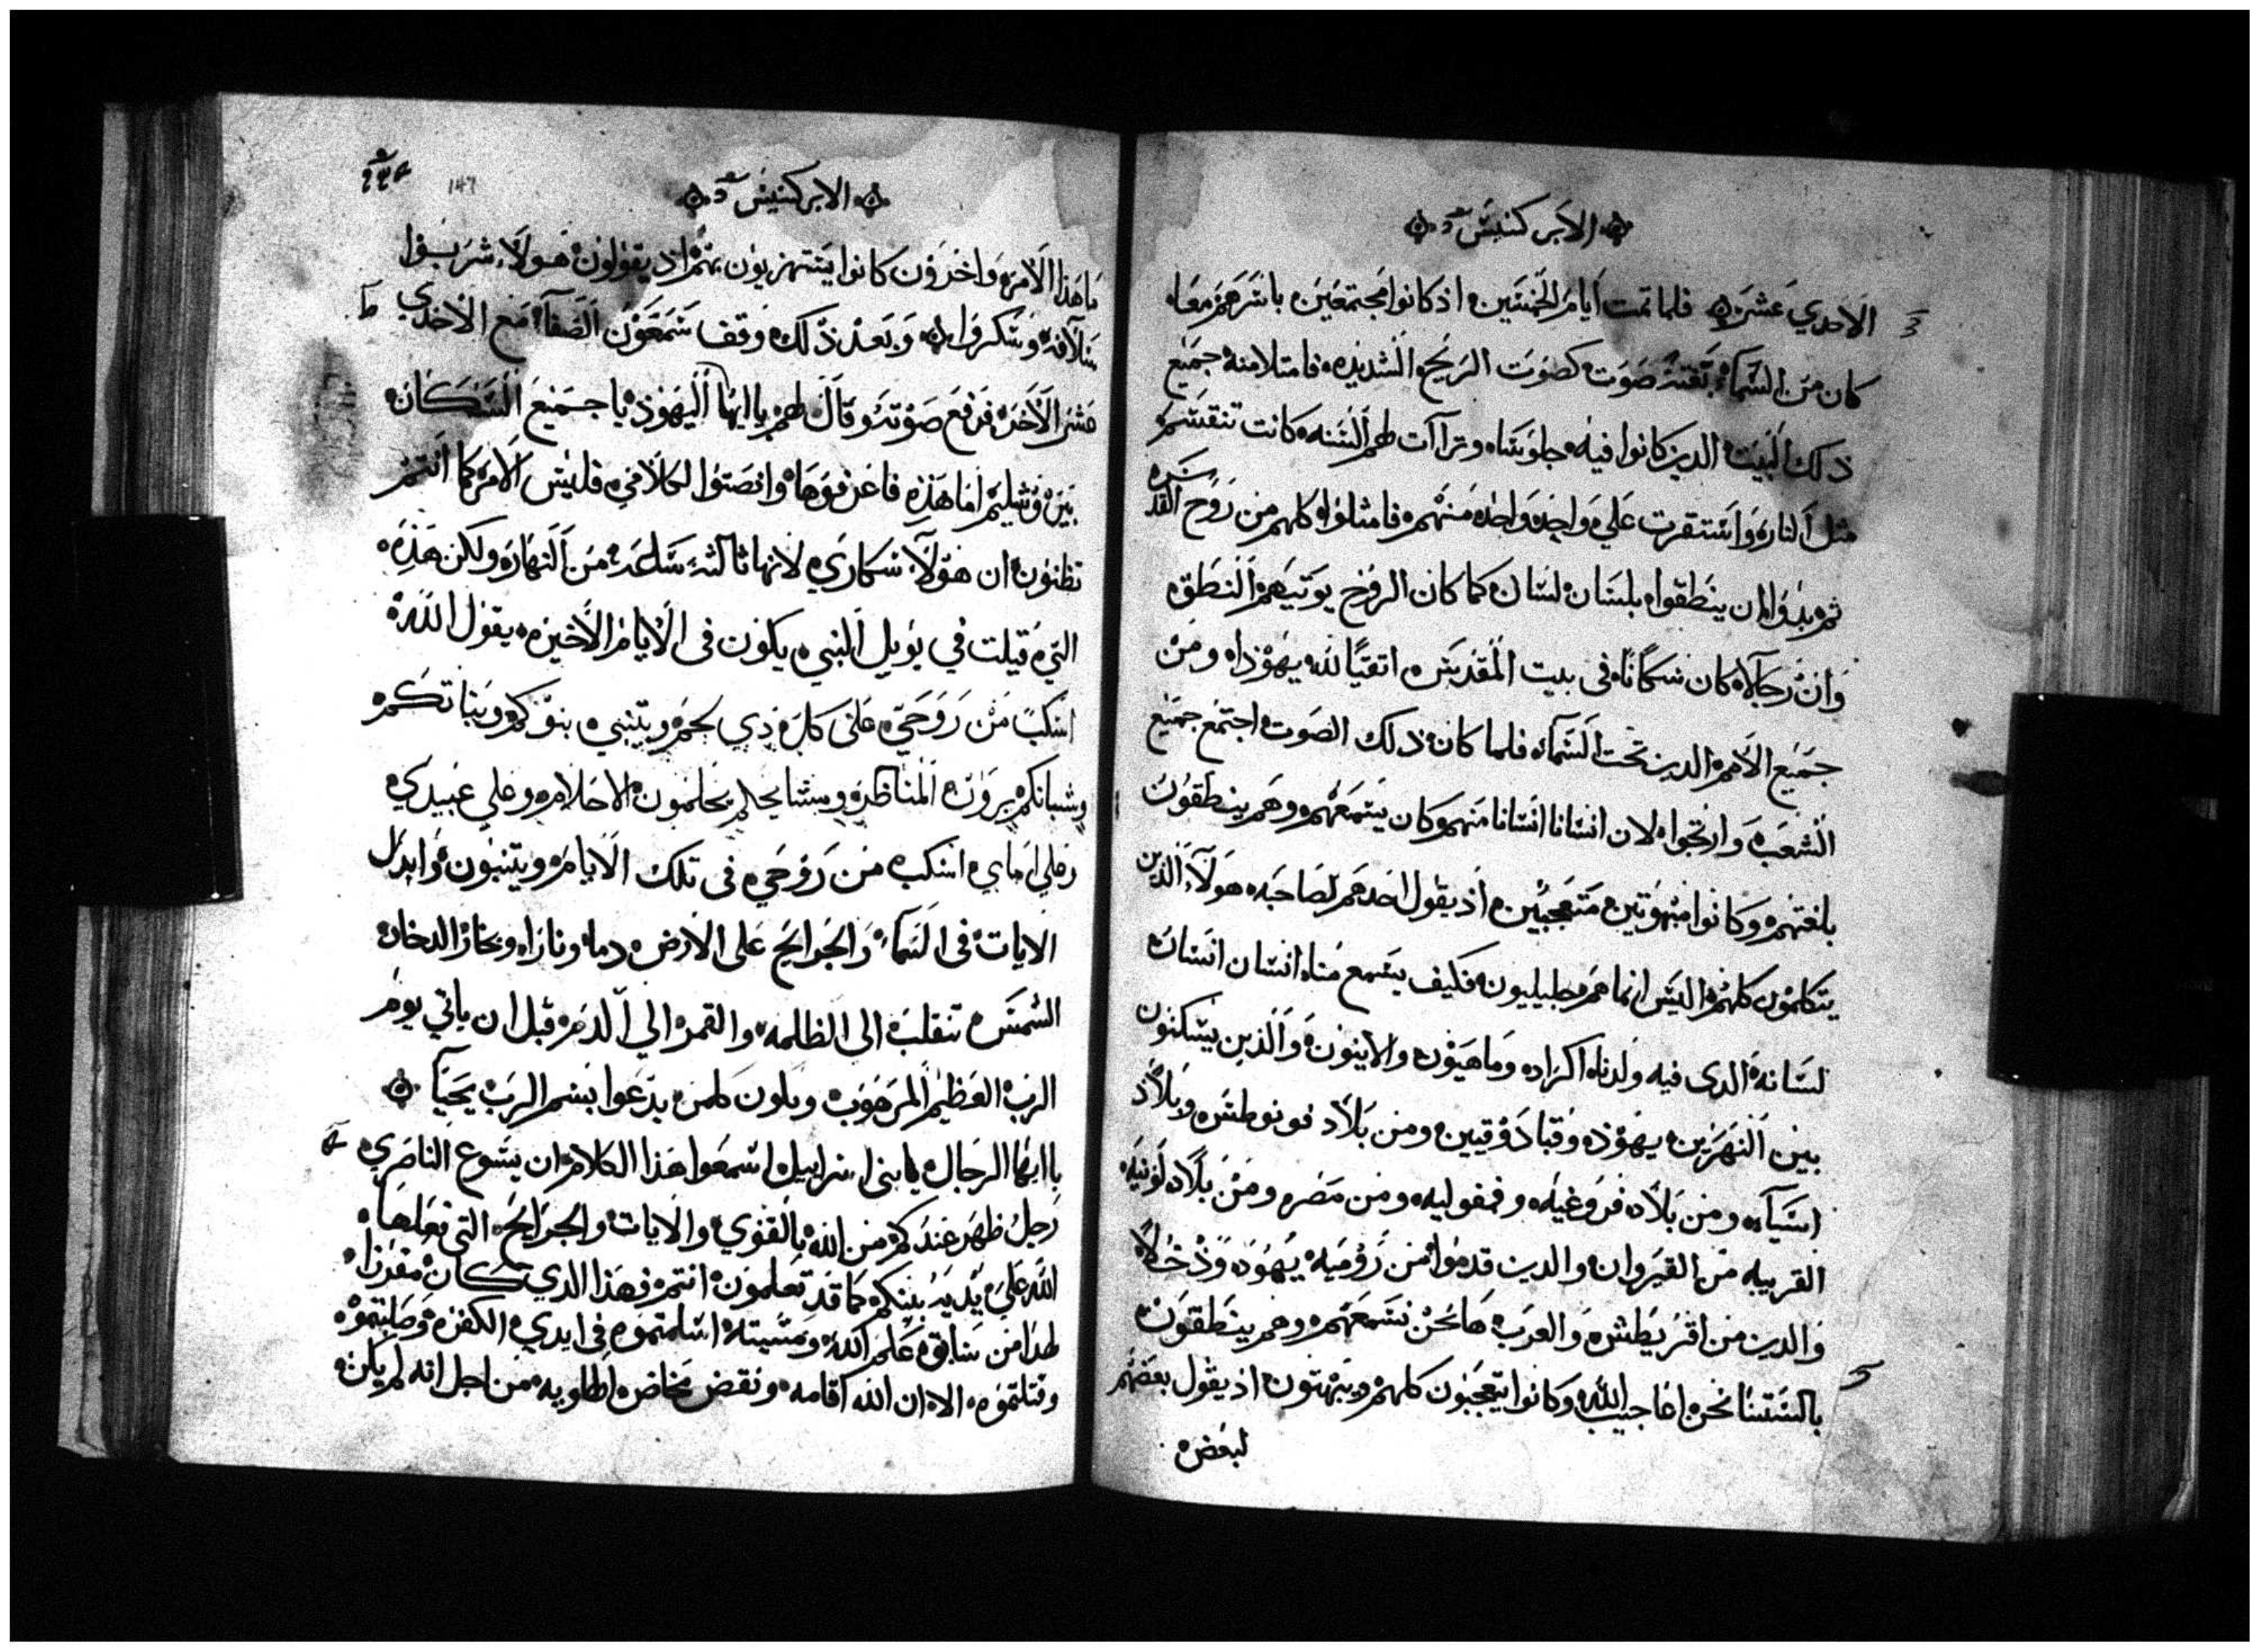 الابركسيس
الاحدي عشر فلما تمت ايام الخمسين اذ كانوا مجتمعين باسرهم معا
كان من السما بغتة صوت كصوت الريح الشديده فامتلا منه جميع
ذلك البيت الدين كانوا فيه جلوسا وترآات لهم السنه كانت تنقسم
مثل النار واستقرت علي واحد واحد منهم فامتلوا كلهم من روح القدس
ثم بدوا ان ينطقوا بلسان لسان كما كان الروح يوتيهم النطق
وان رجآلا كان سكانا في بيت المقدس اتقيا لله يهودا ومن
جميع الامم الدين تحت السما فلما كان ذلك الصوت اجتمع جميع
الشعب وارتجوا لان انسانا انسانا منهم كان يسمعهم وهم ينطقون
بلغتهم وكانوا مبهوتين متعجبين اذ يقول احدهم لصاحبه هولآ الذين
يتكلمون كلهم اليس انما هم جليليون فكيف يسمع منا انسان انسان
لسانه الدي فيه ولدنا اكراد وماهيون والانيون والذين يسكنون
بين النهرين يهود وقبادوقيين ومن بلاد فونوطس وبلاد
اسيآ ومن بلاد فروغيه وفمفوليه ومن مصر ومن بلاد لونيه
القريبه من القيروان والدين قدموا من روميه يهود ودخلا
والدين من اقريطش والعرب ها نحن نسمعهم وهم ينطقون
بالسنتنا نحن اعاجيب الله وكانوا يتعجبون كلهم ويبهتون اذ يقول بعضهم
لبعض
الابركسيس
147
ما هذا الامر واخرون كانوا يستهزيون بهم اذ يقولون هولآ شربوا
سلافه وسكروا وبعد ذلك وقف سمعون الصفا مع الاحدي
عشر الاخر فرفع صوته وقال لهم يا ايها اليهود يا جميع السكان
بيروشليم اما هذه فاعرفوها وانصتوا لكلامي فليس الامر كما انتم
تظنون ان هولآ سكاري لانها ثالثة ساعة من النهار ولكن هذه
التي قيلت في يوييل النبي يكون في الايام الاخيره يقول الله
اسكب من روحي علي كل دي لحم ويتنبي بنوكم وبناتكم
وشبانكم يرون المناظر ومشايخكم يحلمون الاحلام وعلي عبيدي
وعلي اماي اسكب من روحي في تلك الايام ويتنبون وابدل
الايات في السما والجرايح علي الارض دما ونارا وبخار الدخان
الشمس تنقلب الي الظلمه والقمر الي الدم قبل ان ياتي يوم
الرب العظيم المرهوب ويكون كلمن يدعوا بسم الرب يحيا
يا ايها الرجال يا بني اسراييل اسمعوا هذا الكلام ان يسوع الناصري
رجل ظهر عندكم من الله بالقوي والايات والجرايح التي فعلها
الله علي يديه بينكم كما قد تعلمون انتم فهذا الدي كان مفرزا
لهذا من سابق علم الله ومشيته اسلمتموه في ايدي الكفره وصلبتموه
وقتلتموه الا ان الله اقامه ونقض مخاض الهاويه من اجل انه لم يكن